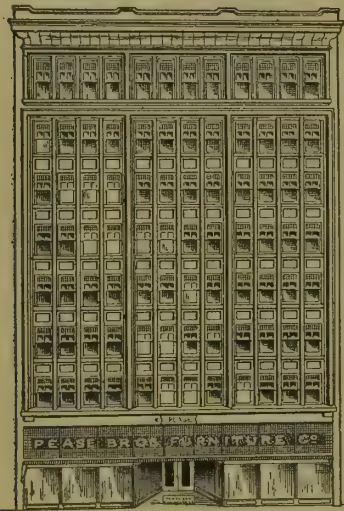 PEASE BROS. FURNITURE CO